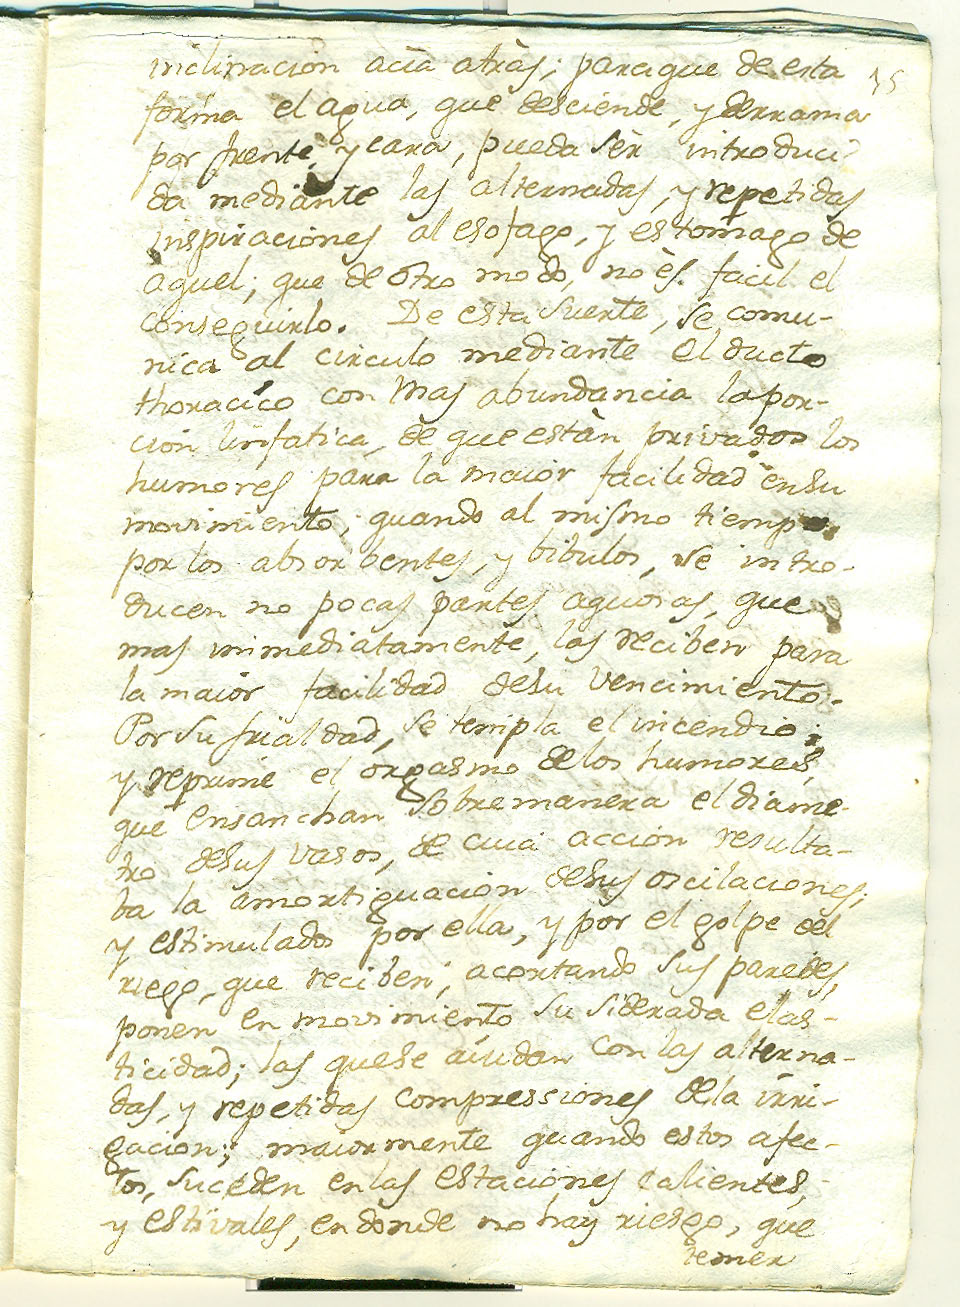 inclinacion acia atràs; paraque de esta
forma el agua, que desciende, y derrama
por frente, y cara, pueda sèr introduci-
da mediante las alternadas, y repetidas
inspiraciones al esofago, y estomago de
aquel; que de otro modo, no ès facil el
conseguirlo. De esta suerte, se comu-
nica al circulo mediante el ducto
thoracico con mas abundancia la por-
cion linfatica, de que estàn privados los
humores para la maior facilidad en su
movimiento; quando al mismo tiempo,
por los absorbentes, y bibulos, se intro-
ducen no pocas partes aguosas, que
mas inmediatamente, las reciben para
la maior facilidad desu vencimiento.
Por su frialdad, se templa el incendio;
y reprime el orgasmo delos humores,
que ensanchan sobremanera el diame-
tro desus vasos, de cuia acción resulta-
ba la amortiguacion desus oscilaciones;
y estimulados por ella, y por el golpe del
riego, que reciben; acortando sus paredes,
ponen en movimiento su siderada elas-
ticidad; las quese aiudan con las alterna-
das, y repetidas compressiones dela irri-
gacion; maiormente quando estos afec-
tos, suceden enlas estaciones calientes,
y estivales, en donde no hay riesgo, que
temer